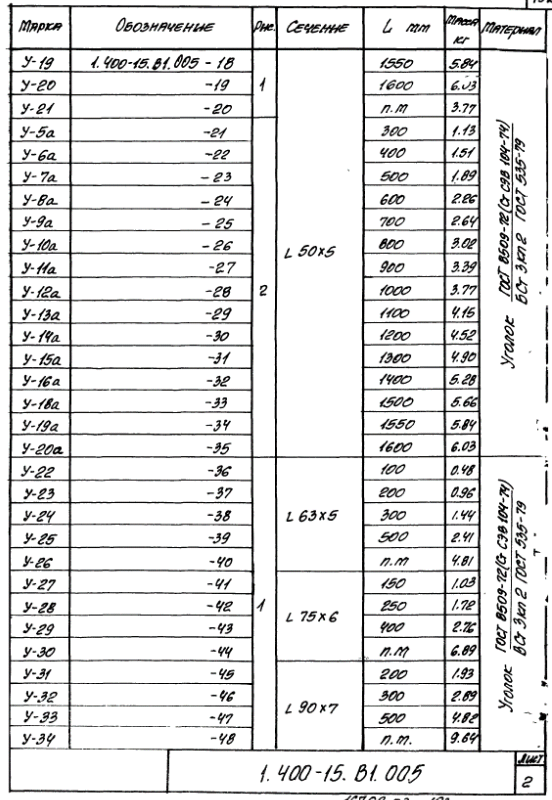 Марка Обозначение Рис. Сечение L мм Масса кг Материал
У-19 1.400-15.В1.005 - 18 1 L 50×5 1550 5.84 Уголок ГОСТ 8509-72 (Ст СЭВ 104-74) / ВСт 3 кп 2 ГОСТ 535-79
У-20 -19 1600 6.03
У-21 -20 п.м 3.77
У-5а -21 2 300 1.13
У-6а -22 400 1.51
У-7а - 23 500 1.89
У-8а - 24 600 2.26
У-9а - 25 700 2.64
У-10а - 26 800 3.02
У-11а -27 900 3.39
У-12а -28 1000 3.77
У-13а -29 1100 4.15
У-14а -30 1200 4.52
У-15а -31 1300 4.90
У-16а -32 1400 5.28
У-18а -33 1500 5.66
У-19а -34 1550 5.84
У-20а -35 1600 6.03
У-22 -36 1 L 63×5 100 0.48 Уголок ГОСТ 8509-72 (Ст СЭВ 104-74) / ВСт 3 кп 2 ГОСТ 535-79
У-23 -37 200 0.96
У-24 -38 300 1.44
У-25 -39 500 2.41
У-26 -40 п.м 4.81
У-27 -41 L 75×6 150 1.03
У-28 -42 250 1.72
У-29 -43 400 2.76
У-30 -44 п.м 6.89
У-31 -45 L 90×7 200 1.93
У-32 -46 300 2.89
У-33 -47 500 4.82
У-34 -48 п.м. 9.64
1.400-15.В1.005 Лист 2